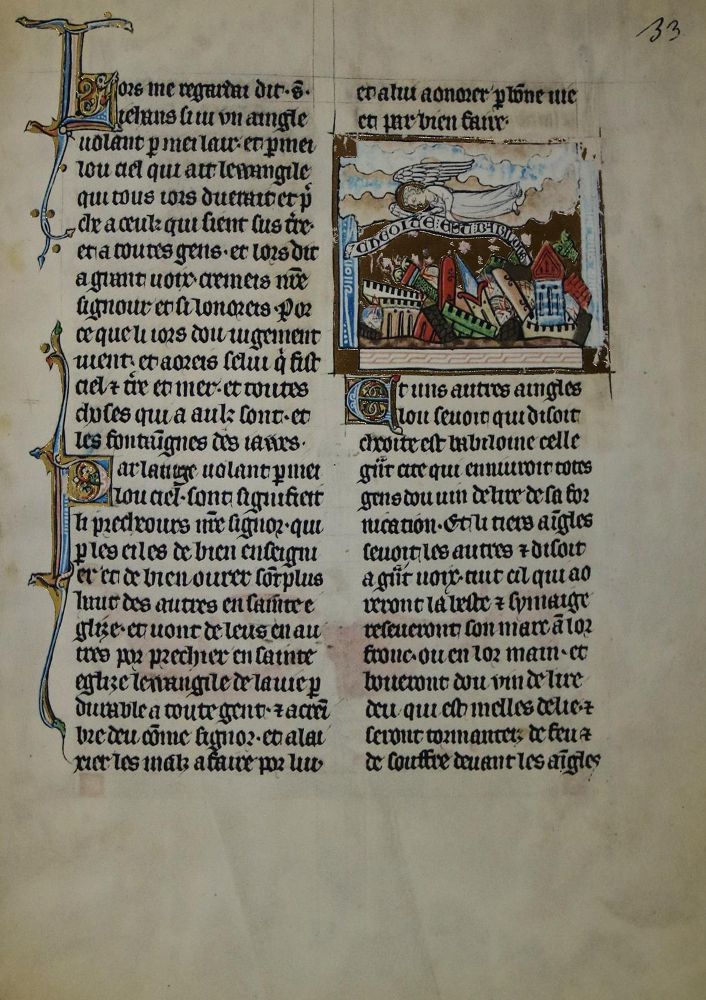 33
Lors me regardai dit · s̄ ·
iehans si ui vn aingle
uolant p̄ mei lair · et p̄mei
lou ciel qui ait lewangile
qui tous iors duerait et p̄
chr̄ a ceulz qui sient sus t̄re ·
et a toutes gens · et lors dit
a grant uoix · cremeis n̄re
signour et si lonoreis · Por
ce que li iors dou iugement
uient · et aoreis selui q̄ fist
ciel ⁊ t̄re et mer · et toutes
choses qui a aulz sont · et
les fontaingnes des iawes ·
Par langle uolant p̄mei
lou ciel · sont signifieit
li precheours n̄re signor · qui
p̄ les eiles de bien enseigni
er et de bien ourer sōt plus
haut des autres en sainte e
glize · et uont de leus en au
tres por prechier en sainte
eglize lewangile de la uie p̄
durable a toute gent · ⁊ a creū
bre deu cōme signor · et a lai
xier les malz a faire por lui ·
et a lui aonorer p̄ bōne uie
et par bien faire ·
Et uns autres aingles
lou seuoit qui disoit
cheoite est babiloine celle
gn̄t cite qui enniuroit totes
gens dou uin de lire de sa for
nication · Et li tiers aīgles
seuoit les autres ⁊ disoit
a gn̄t uoix · tuit cil qui ao
reront la beste ⁊ symaige
reseueront son marc a lor
fronc · ou en lor main · et
boueront dou vin de lire
deu qui est melles de lie · ⁊
seront tormantez de feu ⁊
de souffre deuant les aīgles